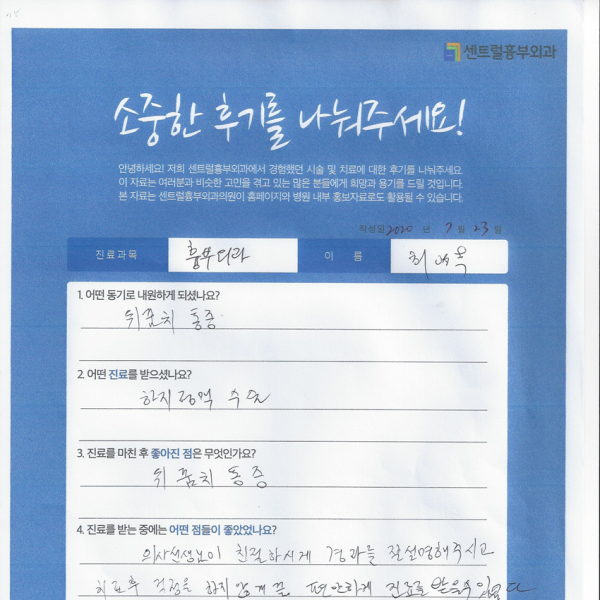 센트럴흉부외과
소중한 후기를 나눠주세요!
안녕하세요! 저희 센트럴흉부외과에서 경험했던 시술 및 치료에 대한 후기를 나눠주세요
이 자료는 여러분과 비슷한 고민을 겪고 있는 많은 분들에게 희망과 용기를 드릴 것입니다.
본 자료는 센트럴흉부외과의원이 홈페이지와 병원 내부 홍보자료로도 활용될 수 있습니다.
작성일 2020 년 7 월 23 일
진료과목 흉부외과 이 름 최
1. 어떤 동기로 내원하게 되셨나요?
뒤꿈치 통증
2. 어떤 진료를 받으셨나요?
하지정맥 수술
3. 진료를 마친 후 좋아진 점은 무엇인가요?
뒤 꿈치 통증
4. 진료를 받는 중에는 어떤 점들이 좋았었나요?
의사선생님이 친절하시게 경과를 잘설명해주시고
치료후 걱정을 하지않게끔 편안하게 진료를 받을수 있었다